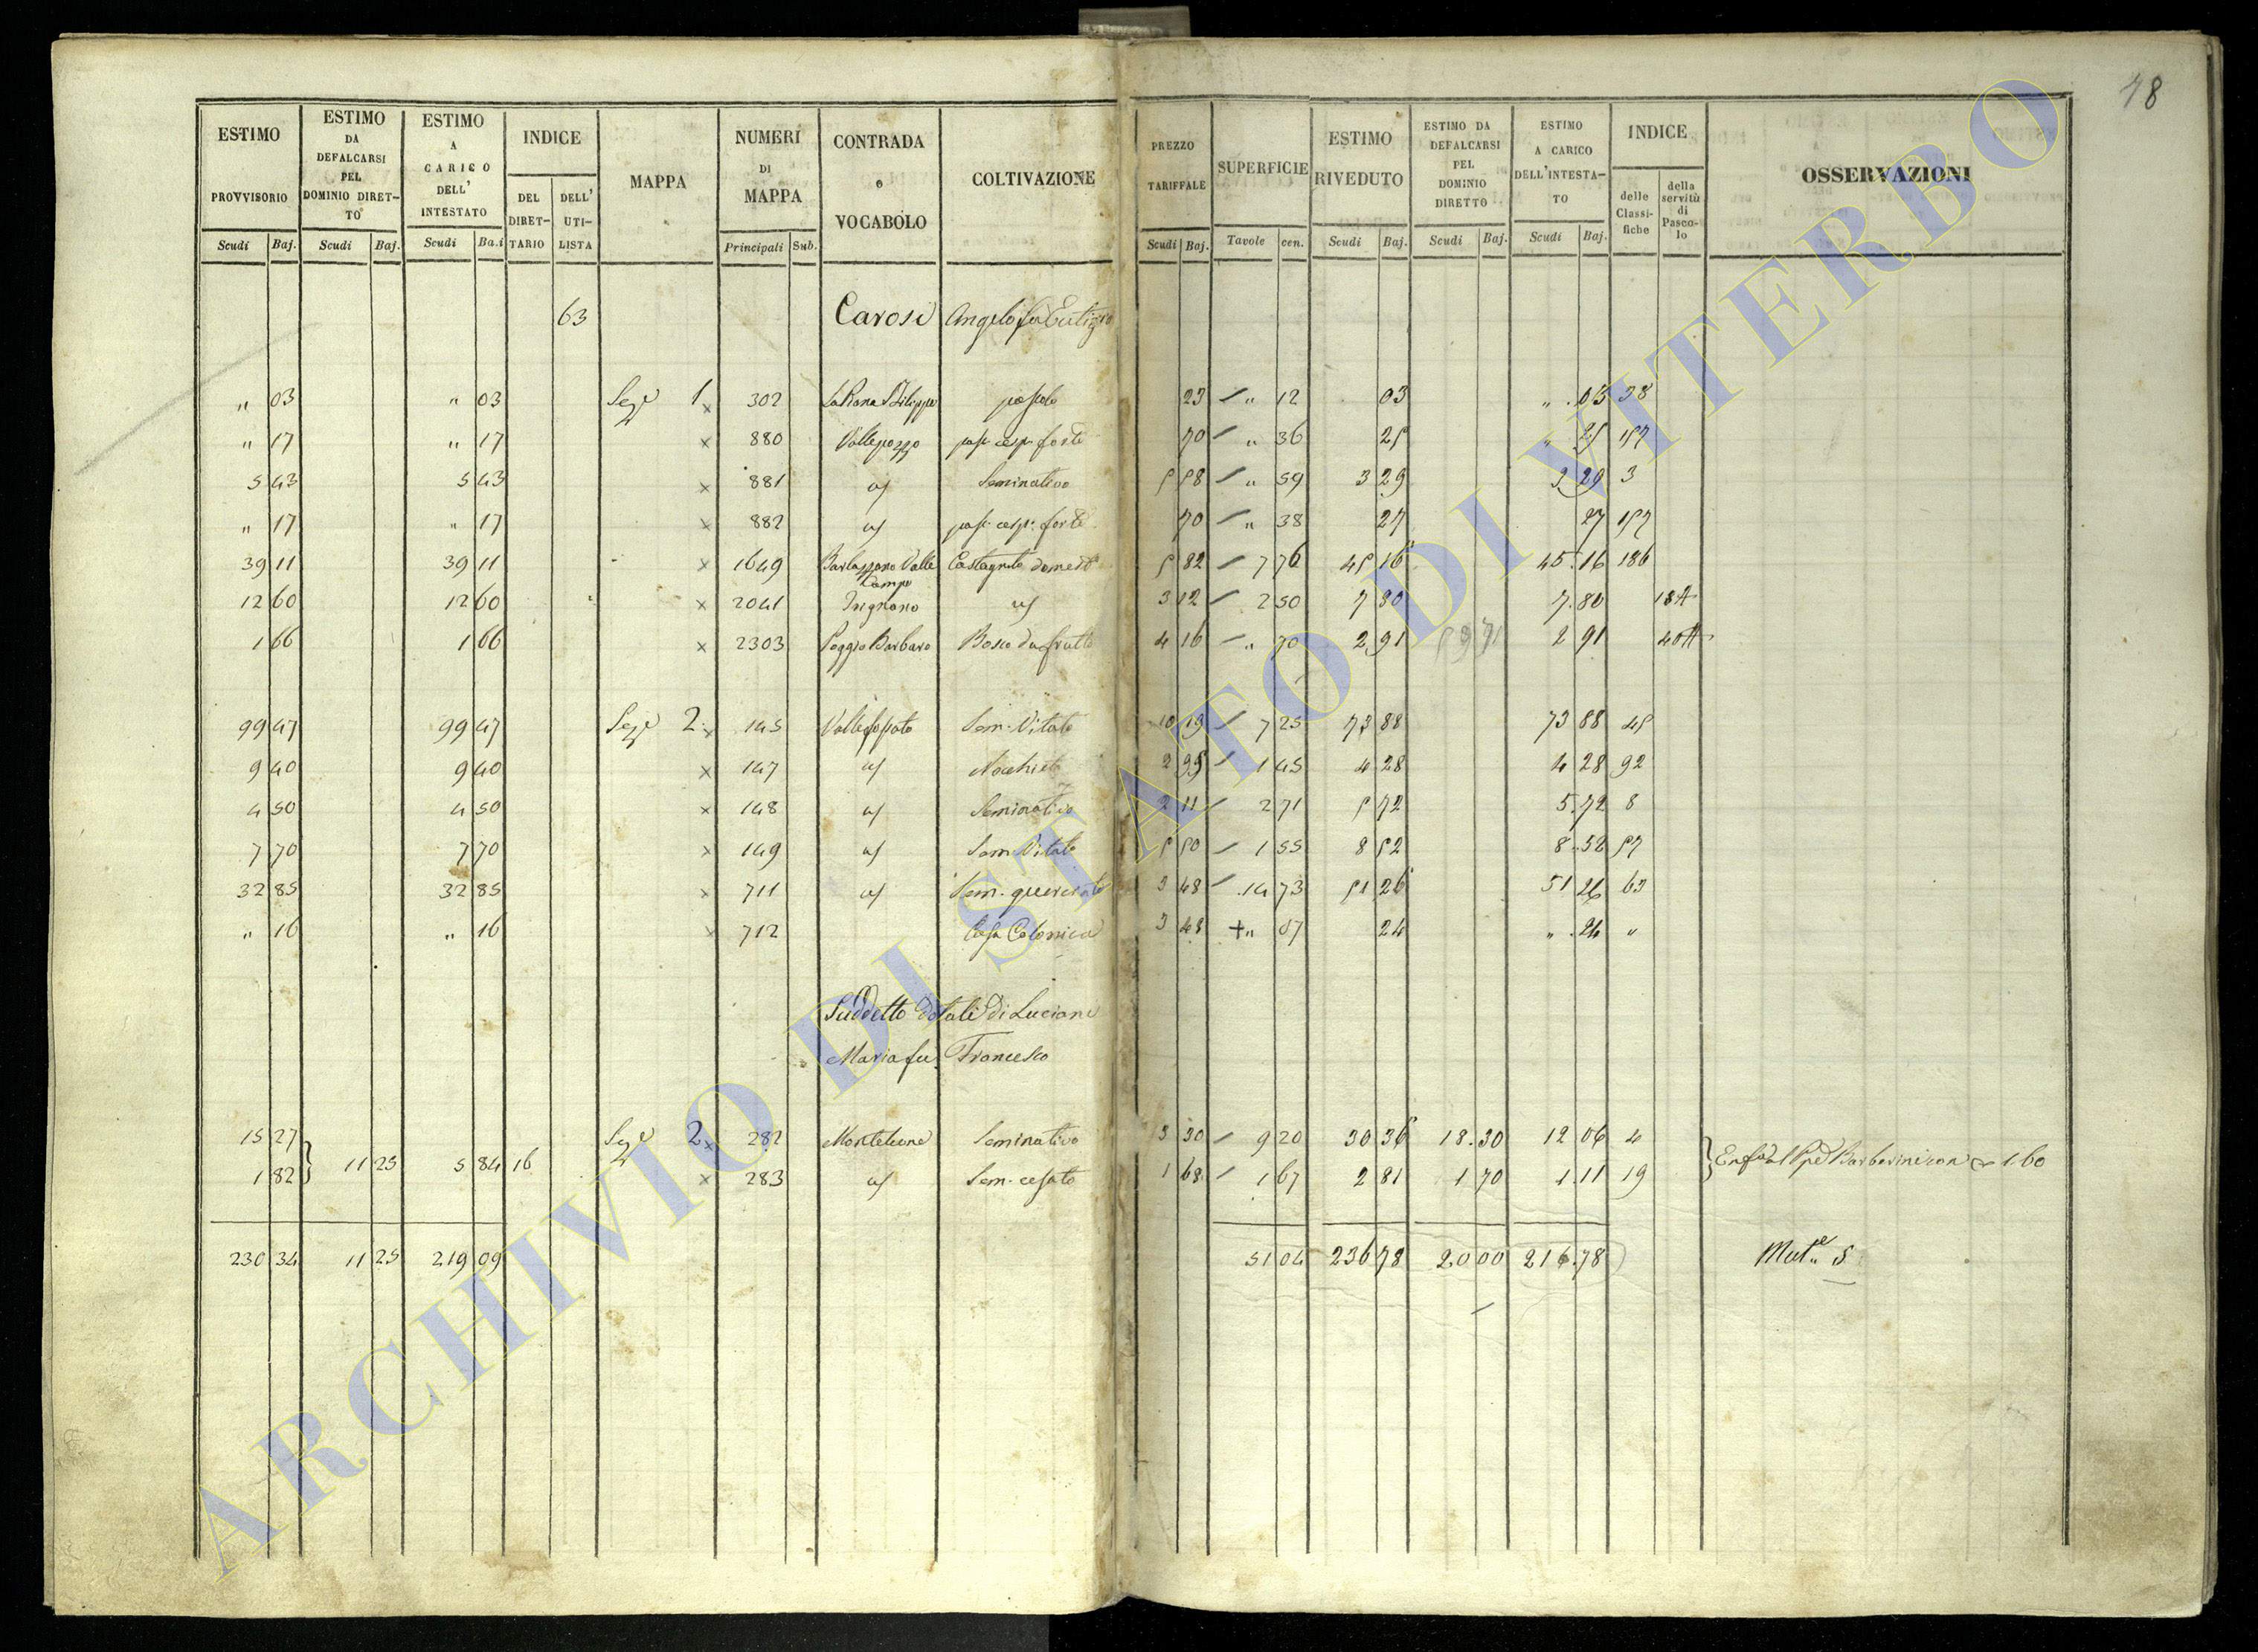 78
ESTIMO PROVVISORIO Scudi Baj.
ESTIMO DA DEFALCARSI PEL DOMINIO DIRETTO Scudi Baj.
ESTIMO A CARICO DELL' INTESTATO Scudi Baj.
INDICE DEL DIRETTARIO DELL' UTILISTA
MAPPA
NUMERI DI MAPPA Principali Sub.
CONTRADA o VOCABOLO
COLTIVAZIONE
PREZZO TARIFFALE Scudi Baj.
SUPERFICIE Tavole cen.
ESTIMO RIVEDUTO Scudi Baj.
ESTIMO DA DEFALCARSI PEL DOMINIO DIRETTO Scudi Baj.
ESTIMO A CARICO DELL'INTESTATO Scudi Baj.
INDICE delle Classifiche della servitù di Pascolo
OSSERVAZIONI
63 Carosi Angelo fu
" 03 " 03 Sez.e 1 x 302 La Piana pascolo 23 " 12 03 " 38
" 17 " 17 x 880 Vallepozzo pas. cesp. forte 70 " 36 25 " 25 157
5 43 5 43 x 881 Seminativo 5 58 " 59 3 29 3 29 3
" 17 " 17 x 882 pas. cesp. forte 70 " 38 27 27 157
39 11 39 11 x 1649 Valle Campo Castagneto domest. 5 82 7 76 45 16 45.16 186
12 60 12 60 x 2041 3 12 2 50 7 80 7.80
1 66 1 66 x 2303 Poggio Barbaro Bosco da frutto 4 16 " 70 2 91 2 91
99 47 99 47 Sez.e 2 x 145 Vallefossato Sem. Vitato 10 19 7 25 73 88 73 88 45
9 40 9 40 x 147 2 95 1 45 4 28 4 28 92
4 50 4 50 x 148 Seminativo 2 11 2 71 5 72 5.72 8
7 70 7 70 x 149 Sem. Vitato 5 50 1 55 8 52 8.52 57
32 85 32 85 x 711 Sem. quercato 3 48 14 73 51 26 51 26 63
" 16 " 16 x 712 Casa Colonica 3 48 +" 07 24 " .24 "
Suddetto dotali di Luciani
Maria fu Francesco
15 27 Sez.e 2 x 282 Monteleone Seminativo 3 30 9 20 30 36 18.30 12 06 4
1 82 11 25 5 84 16 x 283 Sem. cesato 1 68 1 67 2 81 1 70 1.11 19 Barberini 1.60
230 34 11 25 219 09 51 04 236 78 20 00 216.78 Mut.e 5
ARCHIVIO DI STATO DI VITERBO